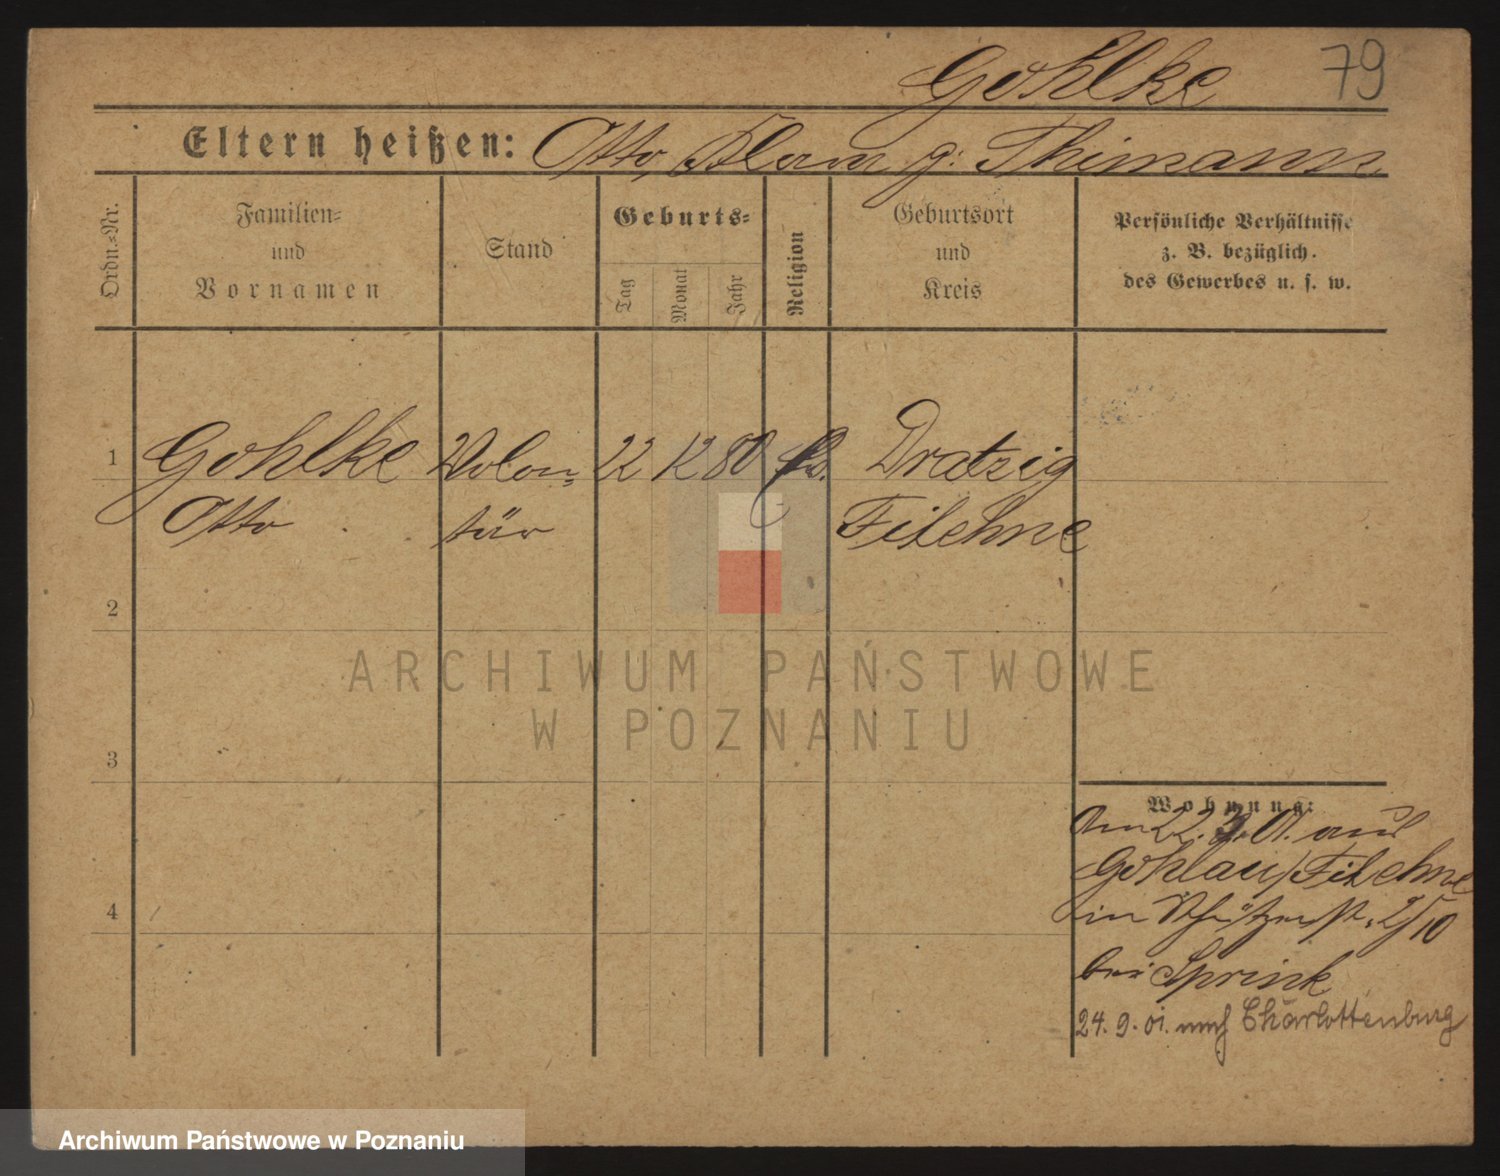 Gohlke 79
Eltern heißen: Otto, Klara g. Thimann
Ordn.-Nr.
Familien-
und
Vornamen
Stand
Geburts-
Tag
Monat
Jahr
Religion
Geburtsort
und
Kreis
Persönliche Verhältnisse
z. B. bezüglich.
des Gewerbes u. s. w.
1 Gohlke Volon- 22 12 80 Dratzig
Otto tär Filehne
2
3
4
ARCHIWUM PAŃSTWOWE
W POZNANIU
Wohnung:
Am 22. 3. 01. aus
Gohlau/Filehne
in Schützenstr. 25/10
bei Sprink
24. 9. 01. nach Charlottenburg
Archiwum Państwowe w Poznaniu